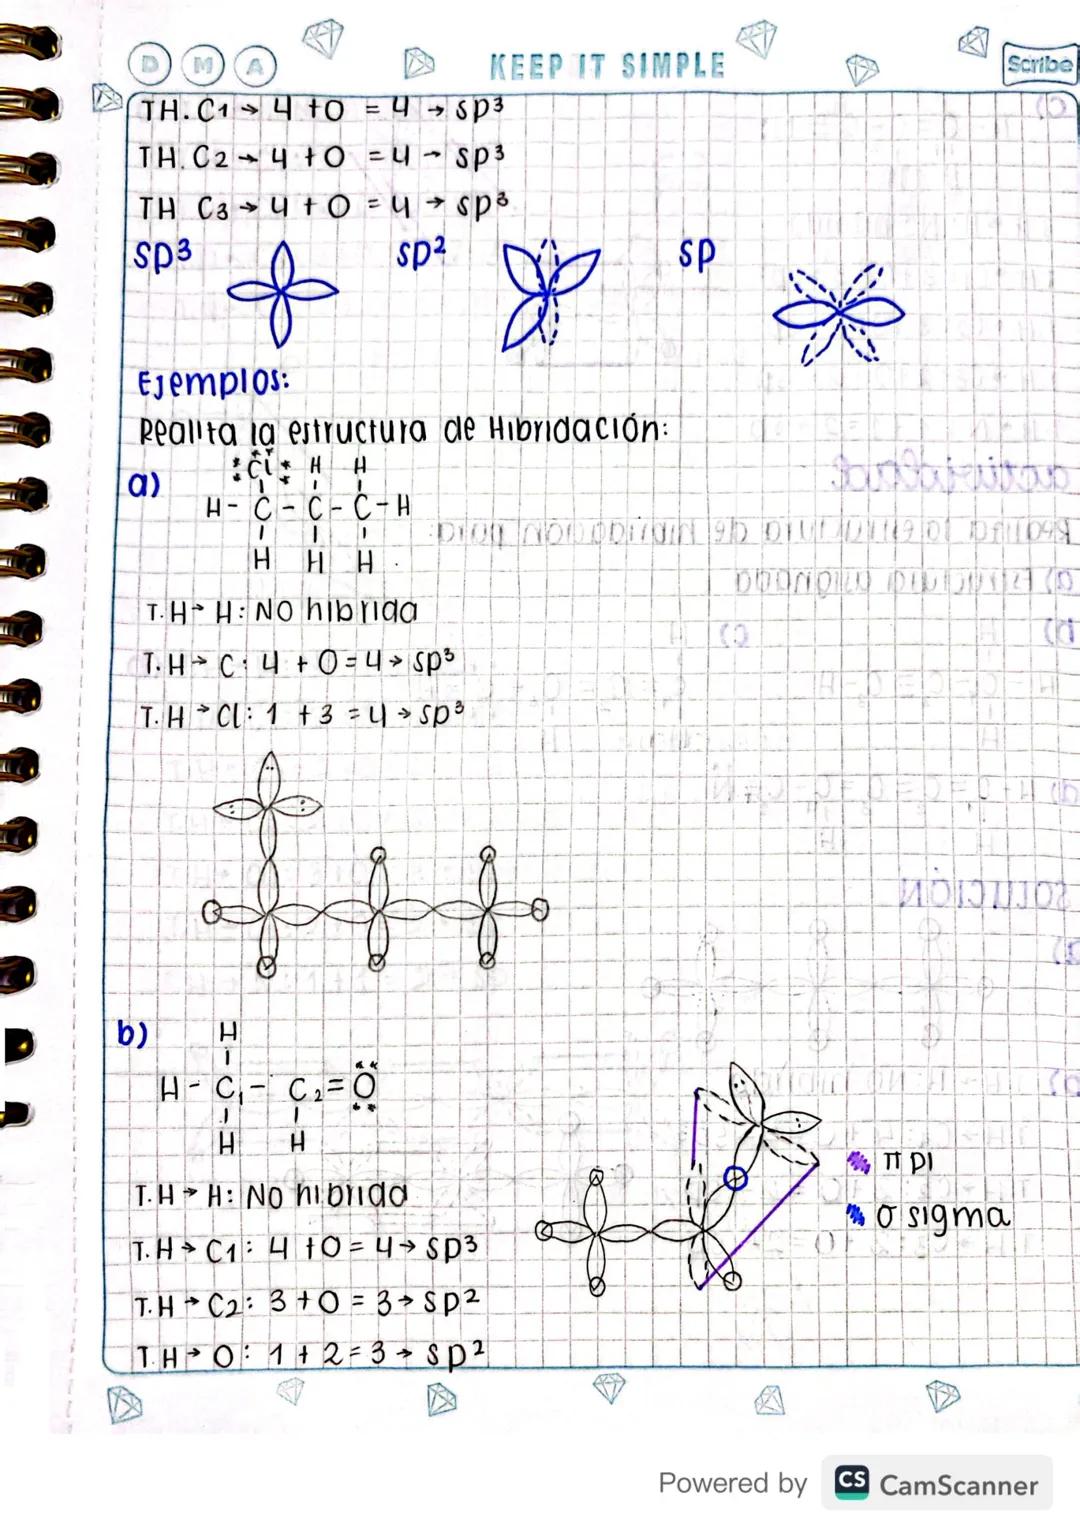 D M A
KEEP IT SIMPLE
Scribe
TH. C1 → 4 + 0 = 4 → sp³
TH. C2 → 4 + 0 = 4 → sp³
TH C3 → 4 + 0 = 4 → sp³
sp³ sp² sp
Ejemplos:
Realita la estructura de Hibridación:
a)
Cl H H
H - C - C - C - H
H H H
T.H → H: NO hibrida
T.H → C: 4 + 0 = 4 → sp³
T.H → Cl: 1 + 3 = 4 → sp³
b)
H
H - C₁ - C₂ = O
H H
T.H → H: NO hibrida
T.H → C1: 4 + 0 = 4 → sp³
T.H → C2: 3 + 0 = 3 → sp²
T.H → O: 1 + 2 = 3 → sp²
π pi
σ sigma
Powered by CS CamScanner